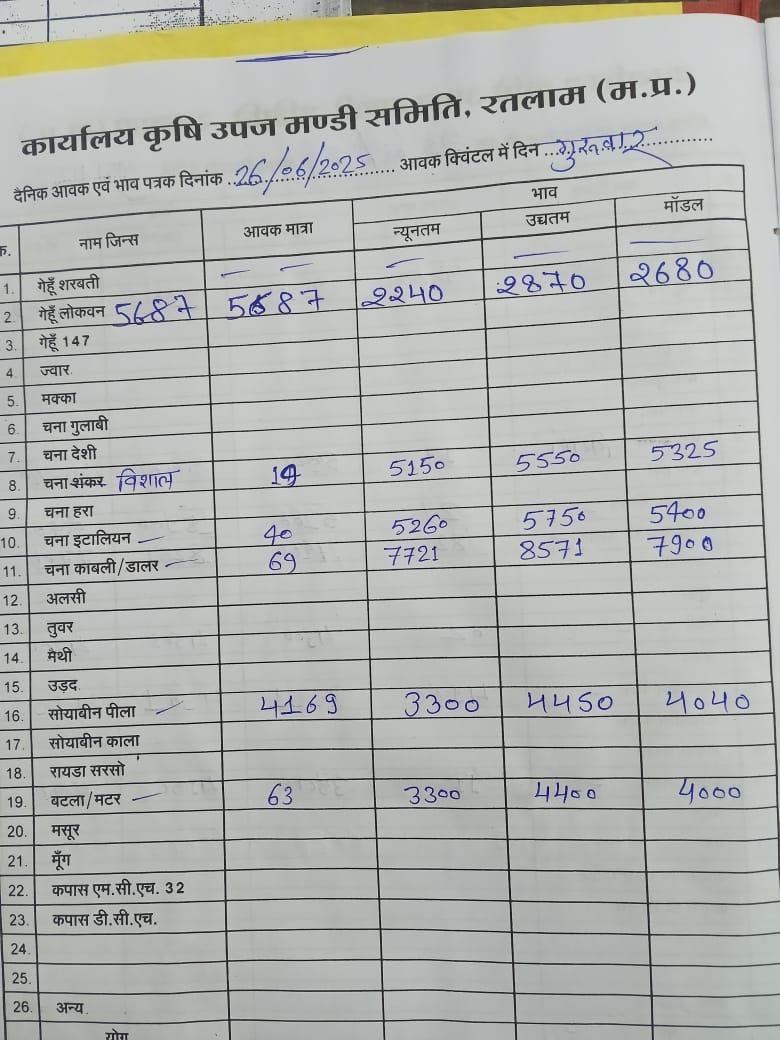 कार्यालय कृषि उपज मण्डी समिति, रतलाम (म.प्र.)
दैनिक आवक एवं भाव पत्रक दिनांक 26/06/2025 आवक क्विंटल में दिन गुरुवार
क्र. नाम जिन्स आवक मात्रा भाव
न्यूनतम उच्चतम मॉडल
1. गेहूँ शरबती — — — — —
2. गेहूँ लोकवन 5687 5687 2240 2870 2680
3. गेहूँ 147
4. ज्वार
5. मक्का
6. चना गुलाबी
7. चना देशी
8. चना शंकर विशाल 19 5150 5550 5325
9. चना हरा
10. चना इटालियन — 40 5260 5750 5400
11. चना काबली/डालर — 69 7721 8571 7900
12. अलसी
13. तुवर
14. मैथी
15. उड़द
16. सोयाबीन पीला — 4169 3300 4450 4040
17. सोयाबीन काला
18. रायडा सरसो
19. बटला/मटर — 63 3300 4400 4000
20. मसूर
21. मूँग
22. कपास एम.सी.एच. 32
23. कपास डी.सी.एच.
24.
25.
26. अन्य
योग